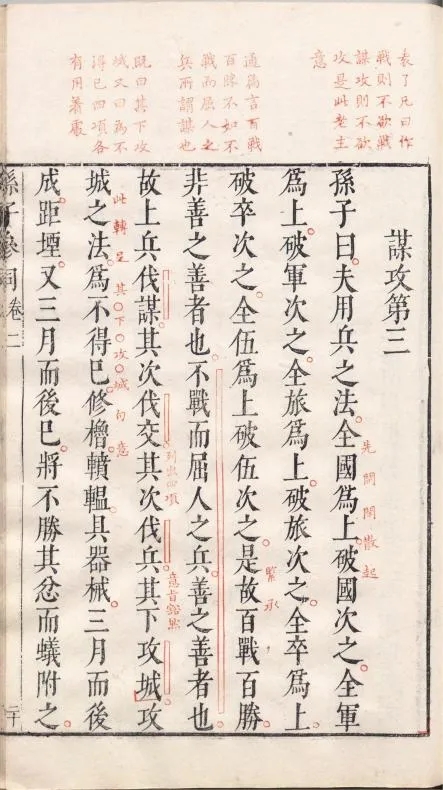 袁了凡曰作
戰則不欲戰
謀攻則不欲
攻是此老主
意
通篇言百戰
百勝不如不
戰而屈人之
兵所謂謀也
既曰其下攻
城又曰為不
得已四項各
有用著處
謀攻第三
孫子曰。夫用兵之法。全國爲上。破國次之。全軍
先閒閒散起
爲上。破軍次之。全旅爲上。破旅次之。全卒爲上
破卒次之。全伍爲上破伍次之。是故百戰百勝
緊承
非善之善者也。不戰而屈人之兵。善之善者也
故上兵伐謀。其次伐交。其次伐兵。其下攻城。攻
列出四項
意旨豁然
城之法。爲不得已。修櫓轒轀。具器械。三月而後
此轉是其下攻城句意
成。距堙。又三月而後已。將不勝其忿而蟻附之。
孫子參同 卷二
二十